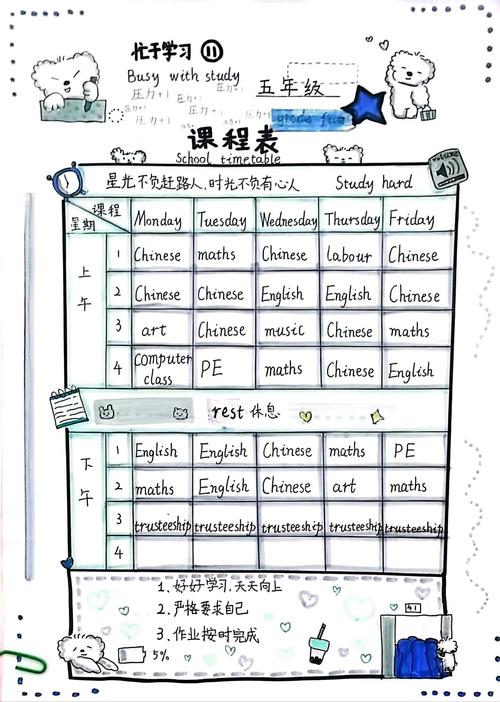 忙于学习 ⑪
Busy with study
压力+1
压力+1
压力+1
压力+1
压力+1
五年级
课程表
School timetable
VOLUME
星光不负赶路人,时光不负有心人 Study hard
课程 Monday Tuesday Wednesday Thursday Friday
星期
上午
1 Chinese maths Chinese labour Chinese
2 Chinese Chinese English English Chinese
3 art Chinese music Chinese maths
4 computer class PE maths Chinese English
rest 休息
下午
1 English English Chinese maths PE
2 maths English Chinese art maths
3 trusteeship trusteeship trusteeship trusteeship trusteeship
4
1. 好好学习,天天向上
2. 严格要求自己
3. 作业按时完成
5%